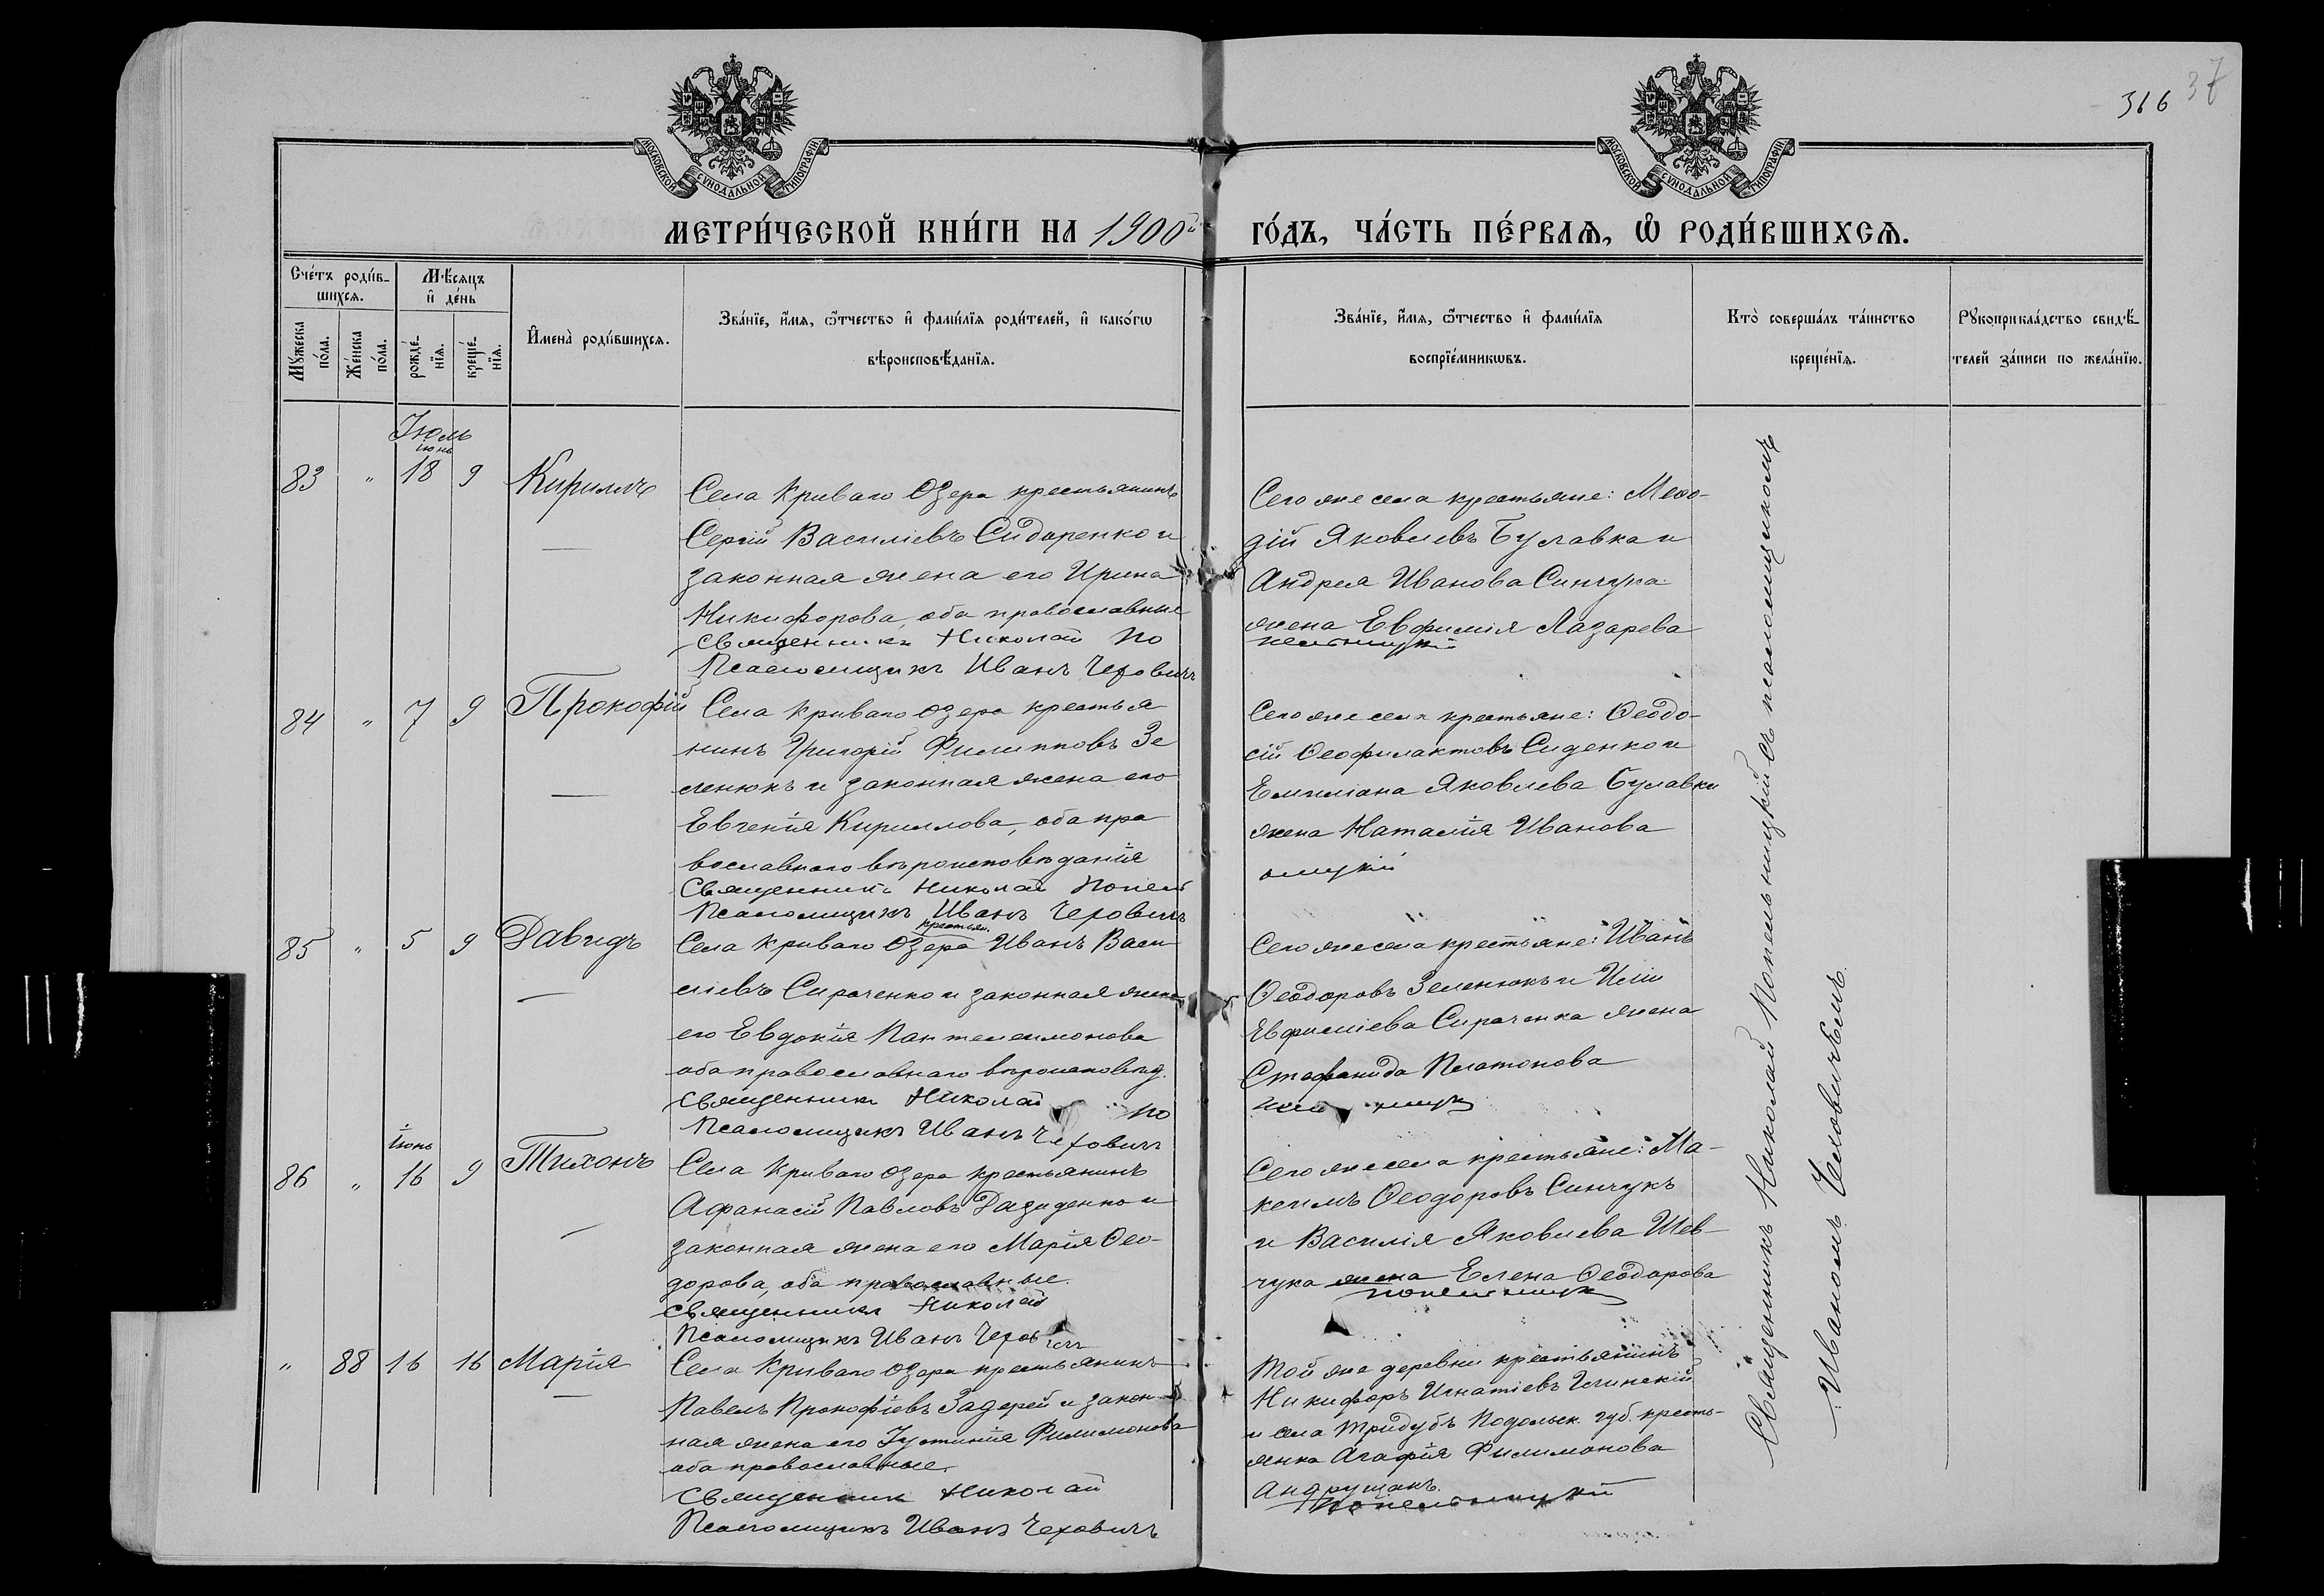 316 37
МОСКОВСКОЙ СѴНОДАЛЬНОЙ ТИПОГРАФІИ
МОСКОВСКОЙ СѴНОДАЛЬНОЙ ТИПОГРАФІИ
МЕТРИ́ЧЕСКОЙ КНИ́ГИ НА 1900й ГО́ДЪ, ЧА́СТЬ ПЕ́РВАѦ, Ѡ РОДИ́ВШИХСѦ.
Сче́тъ роди́в-
шихсѧ.
Мѣ́сяцъ
и҆ де́нь
Мꙋ́жеска
по́ла.
Же́нска
по́ла.
рожде́-
нїѧ.
креще́-
нїѧ.
И҆мена̀ роди́вшихсѧ.
Зва́нїе, и҆́мѧ, ѻ҆́тчество и҆ фами́лїѧ роди́телей, и҆ како́гѡ
вѣроисповѣ́данїѧ.
Зва́нїе, и҆́мѧ, ѻ҆́тчество и҆ фами́лїѧ
воспрїе́мникѡвъ.
Кто̀ соверша́лъ та́инство
креще́нїѧ.
Рꙋкоприкла́дство свидѣ́-
телей за́писи по жела́нїю.
Іюль
іюнь
83 " 18 9 Кириллъ
Села Криваго Озера крестьянинъ
Сергій Василіевъ Сидоренко и
законная жена его Ирина
Никифорова, оба православные
Священникъ Николай По
Псаломщикъ Иванъ Чехович
Сего же села крестьяне: Меѳо-
дій Яковлевъ Булавка и
Андрея Иванова Синчука
жена Евфимія Лазарева
пельницкій
84 " 7 9 Прокофій
Села Криваго Озера крестья
нинъ Григорій Филипповъ Зе
ленюкъ и законная жена его
Евгенія Кириллова, оба пра
вославнаго вѣроисповѣданія
Священникъ Николай Попель
Псаломщикъ Иванъ Чехович
Сего же села крестьяне: Ѳеодо-
сій Ѳеофилактовъ Сиденко и
Емиліана Яковлева Булавки
жена Наталія Иванова
ницкій
85 " 5 9 Давидъ
крестьян.
Села Криваго Озера Иванъ Васи
ліевъ Сираченко и законная жена
его Евдокія Пантелеимонова
оба православнаго вѣроисповѣд.
Священникъ Николай По
Псаломщикъ Иванъ Чехович
Сего же села крестьяне: Иванъ
Ѳеодоровъ Зеленюкъ и Иліи
Евфиміева Сираченка жена
Стефанида Платонова
іюнь
86 " 16 9 Тихонъ
Села Криваго Озера крестьянинъ
Афанасій Павловъ Дазиденко и
законная жена его Марія Ѳео-
дорова, оба православные.
Священникъ Николай
Псаломщикъ Иванъ Чехович
Сего же села крестьяне: Ма-
ксимъ Ѳеодоровъ Синчукъ
и Василія Яковлева Шев-
чука жена Елена Ѳеодорова
Попельницкій
" 88 16 16 Марія
Села Криваго Озера крестьянинъ
Павелъ Прокофіевъ Задерей и закон-
ная жена его Іустинія Филимонова
оба православные.
Священникъ Николай
Псаломщикъ Иванъ Чеховичъ
Той же деревни крестьянинъ
Никифоръ Игнатіевъ Илинскій
и села Тридубъ Подольск. губ. кресть-
янка Агафія Филимонова
Андрущакъ.
Попельницкій
Священникъ Николай Попельницкій съ псаломщикомъ
Иваномъ Чеховичемъ.